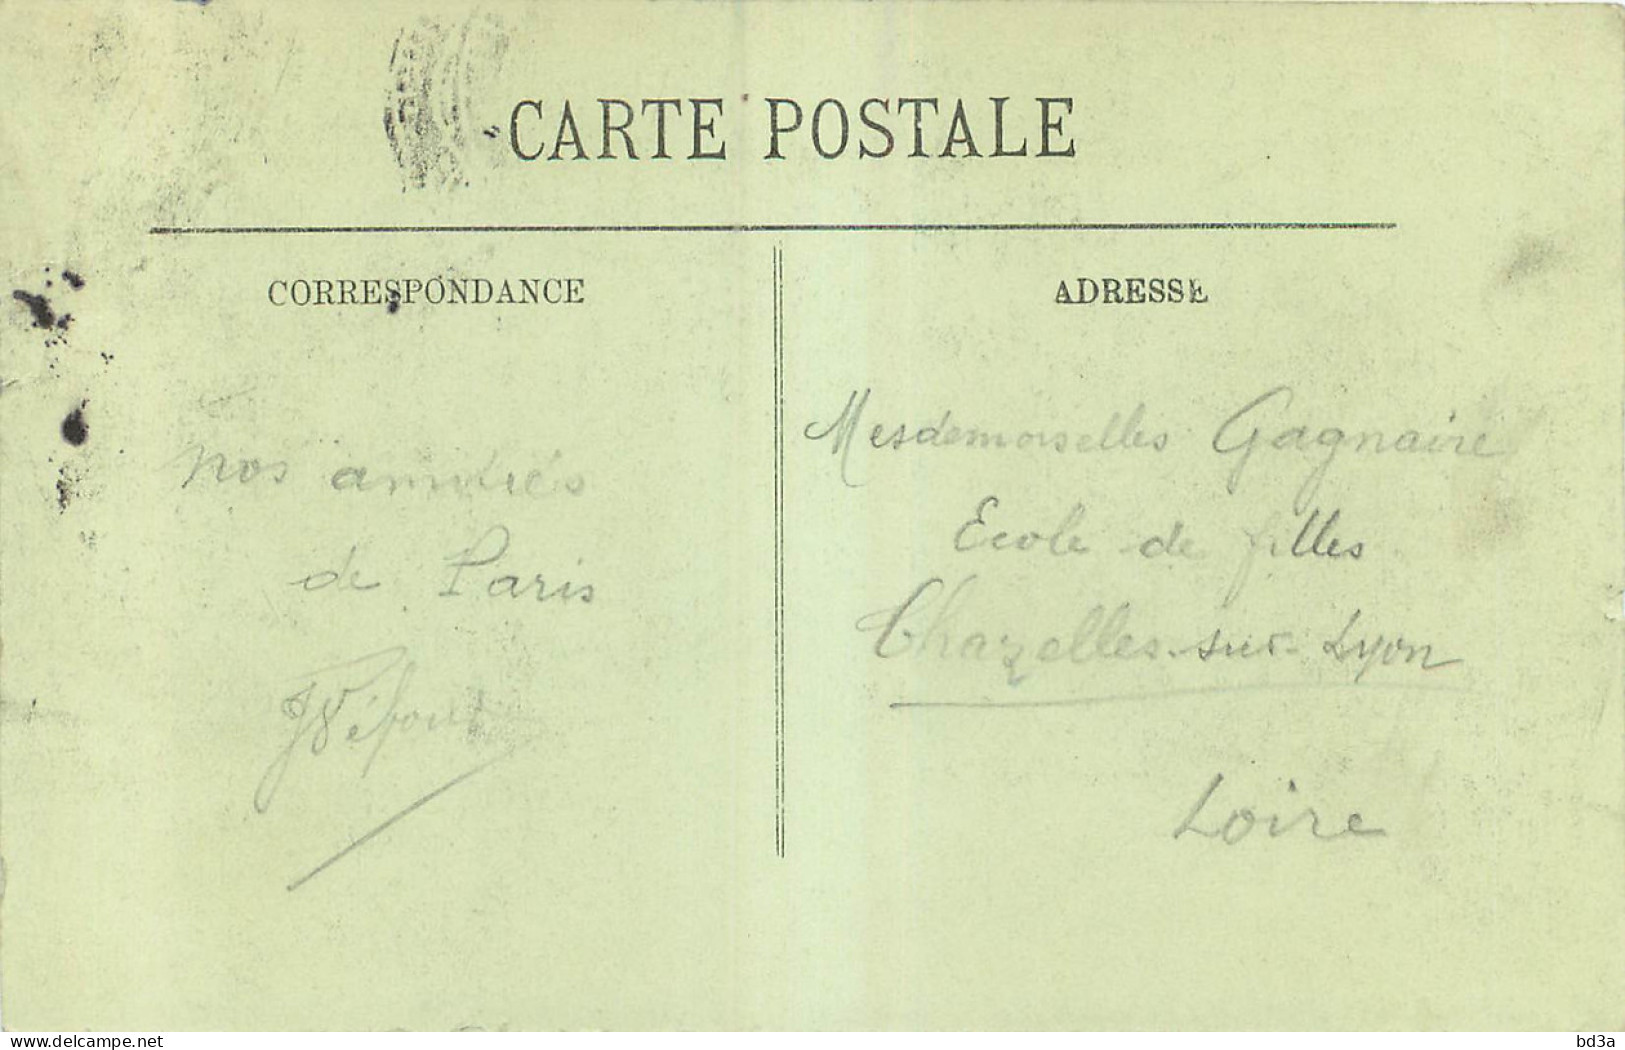 CARTE POSTALE
CORRESPONDANCE
ADRESSE
nos amitiés
de Paris
Mesdemoiselles Gagnaire
Ecole de filles
Chazelles-sur-Lyon
Loire
www.delcampe.net
bd3a